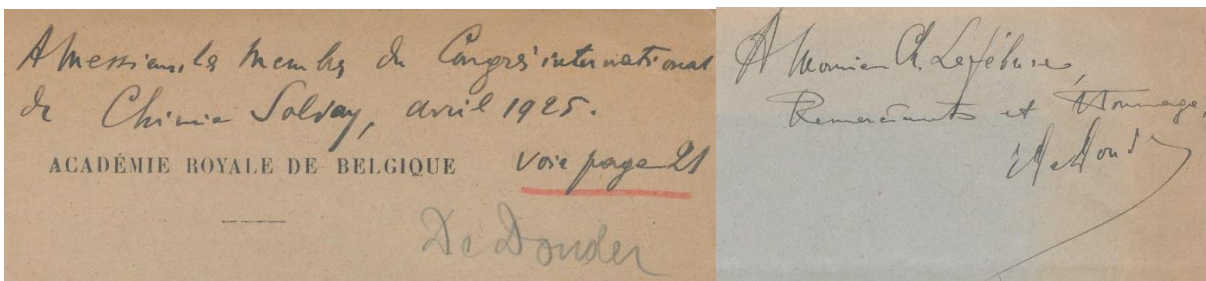 A Messieurs les Membres du Congrès international
de Chimie Solvay, avril 1925.
ACADÉMIE ROYALE DE BELGIQUE
voir page 21
De Donder
A Monsieur Ch. Lefébure,
Remerciements et Hommage,